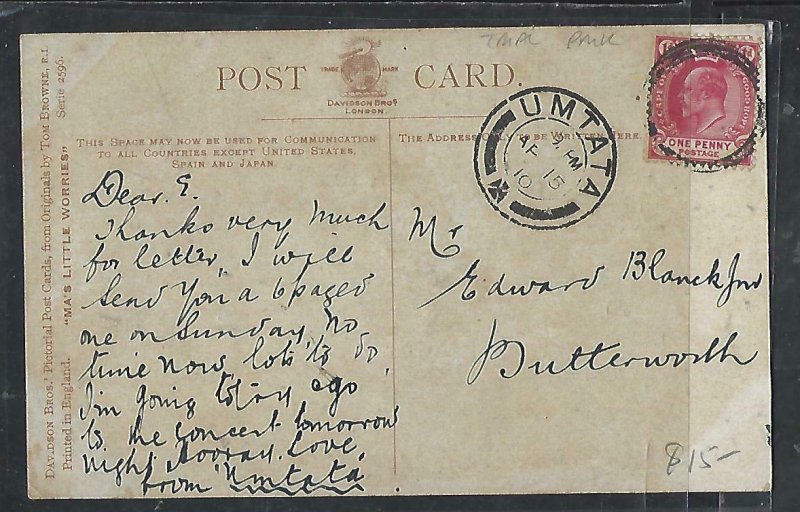 TRAP PARK
POST CARD.
TRADE MARK
DAVIDSON BROS.
LONDON.
THIS SPACE MAY NOW BE USED FOR COMMUNICATION
TO ALL COUNTRIES EXCEPT UNITED STATES,
SPAIN AND JAPAN.
THE ADDRESS ONLY TO BE WRITTEN HERE.
DAVIDSON BROS.' Pictorial Post Cards, from Originals by TOM BROWNE, R.I.
Printed in England. "MA'S LITTLE WORRIES" Serie 2596.
UMTATA
AP 15
10
CAPE OF GOOD HOPE
ONE PENNY
POSTAGE
Dear. E.
Thanks very much
for letter, I will
send you a 6 paged
one on Sunday, No
time now, lots to do,
I'm going to try
to the concert tomorrow
night, Hooray. Love
from "Umtata"
Mr
Edward Blanck Jnr
Butterworth
$15-